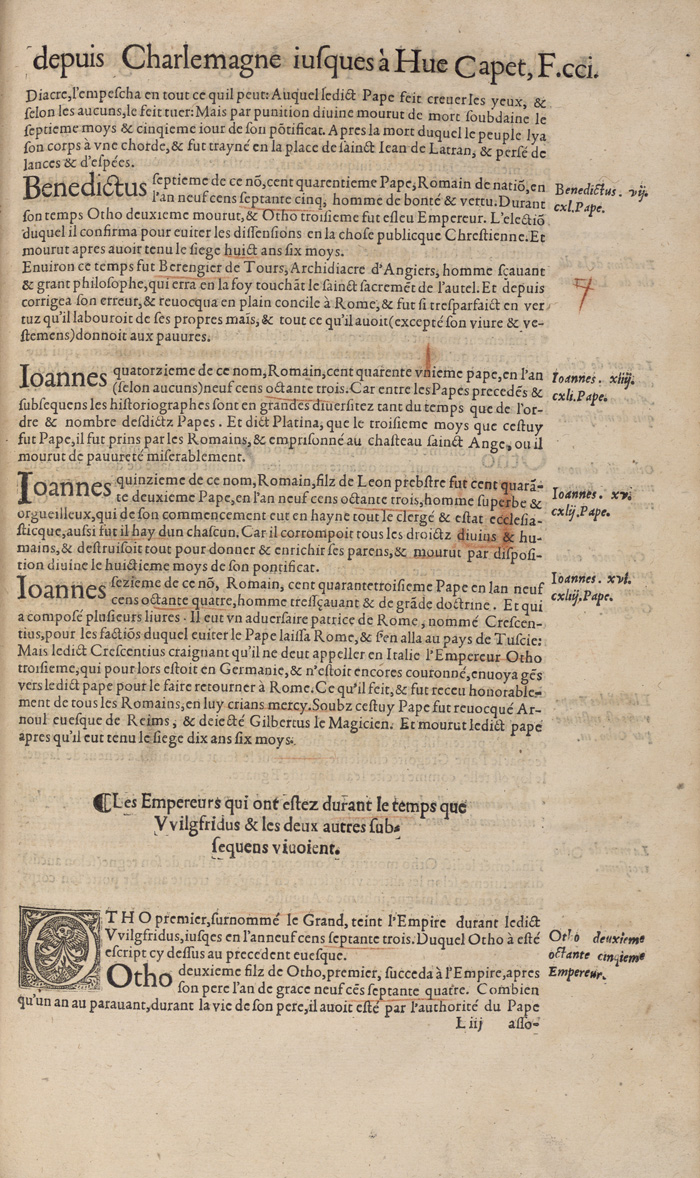 depuis Charlemagne iusques à Hue Capet, F.cci.
Diacre, l'empescha en tout ce quil peut: Auquel ledict Pape feit creuer les yeux, &
selon les aucuns, le feit tuer: Mais par punition diuine mourut de mort soubdaine le
septieme moys & cinqieme iour de son põtificat. Apres la mort duquel le peuple lya
son corps à vne chorde, & fut trayné en la place de sainct Iean de Latran, & persé de
lances & d'espées.
Benedictus septieme de ce nõ, cent quarentieme Pape, Romain de natiõ, en
l'an neuf cens septante cinq, homme de bonté & vertu. Durant
son temps Otho deuxieme mourut, & Otho troisieme fut esleu Empereur. L'electiõ
duquel il confirma pour euiter les dissensions en la chose publicque Chrestienne. Et
mourut apres auoit tenu le siege huict ans six moys.
Benedictus. vij.
cxl. Pape.
Enuiron ce temps fut Berengier de Tours, Archidiacre d'Angiers, homme sçauant
& grant philosophe, qui erra en la foy touchãt le sainct sacremẽt de l'autel. Et depuis
corrigea son erreur, & reuocqua en plain concile à Rome, & fut si tresparfaict en ver
tuz qu'il labouroit de ses propres mais, & tout ce qu'il auoit (excepté son viure & ve-
stemens) donnoit aux pauures.
Ioannes quatorzieme de ce nom, Romain, cent quarente vnieme pape, en l'an
(selon aucuns) neuf cens octante trois. Car entre les Papes precedẽs &
subsequens les historiographes sont en grandes diuersitez tant du temps que de l'or-
dre & nombre desdictz Papes. Et dict Platina, que le troisieme moys que cestuy
fut Pape, il fut prins par les Romains, & emprisonné au chasteau sainct Ange, ou il
mourut de pauureté miserablement.
Ioannes. xiiij.
cxli. Pape.
Ioannes quinzieme de ce nom, Romain, filz de Leon prebstre fut cent quarã-
te deuxieme Pape, en l'an neuf cens octante trois, homme superbe &
orgueilleux, qui de son commencement eut en hayne tout le clergé & estat ecclesia-
sticque, aussi fut il hay dun chascun. Car il corrompoit tous les droictz diuins & hu-
mains, & destruisoit tout pour donner & enrichir ses parens, & mourut par disposi-
tion diuine le huictieme moys de son pontificat.
Ioannes. xv.
cxlij. Pape.
Ioannes sezieme de ce nõ, Romain, cent quarantetroisieme Pape en lan neuf
cens octante quatre, homme tressçauant & de grãde doctrine. Et qui
a composé plusieurs liures. Il eut vn aduersaire patrice de Rome, nommé Crescen-
tius, pour les factiõs duquel euiter le Pape laissa Rome, & s'en alla au pays de Tuscie:
Mais ledict Crescentius craignant qu'il ne deut appeller en Italie l'Empereur Otho
troisieme, qui pour lors estoit en Germanie, & n'estoit encores couronné, enuoya gẽs
vers ledict pape pour le faire retourner à Rome. Ce qu'il feit, & fut receu honorable-
ment de tous les Romains, en luy crians mercy. Soubz cestuy Pape fut reuocqué Ar-
noul euesque de Reims, & deiecté Gilbertus le Magicien. Et mourut ledict pape
apres qu'il eut tenu le siege dix ans six moys.
Ioannes. xvi.
cxliij. Pape.
¶Les Empereurs qui ont estez durant le temps que
Vvilgfridus & les deux autres sub-
sequens viuoient.
OTHO premier, surnommé le Grand, teint l'Empire durant ledict
Vvilgfridus, iusqes en l'anneuf cens septante trois. Duquel Otho à esté
escript cy dessus au precedent euesque.
Otho deuxieme filz de Otho, premier, succeda à l'Empire, apres
son pere l'an de grace neuf cẽs septante quatre. Combien
qu'un an au parauant, durant la vie de son pere, il auoit esté par l'authorité du Pape
Otho deuxieme
octante cinqieme
Empereur.
L iij asso-